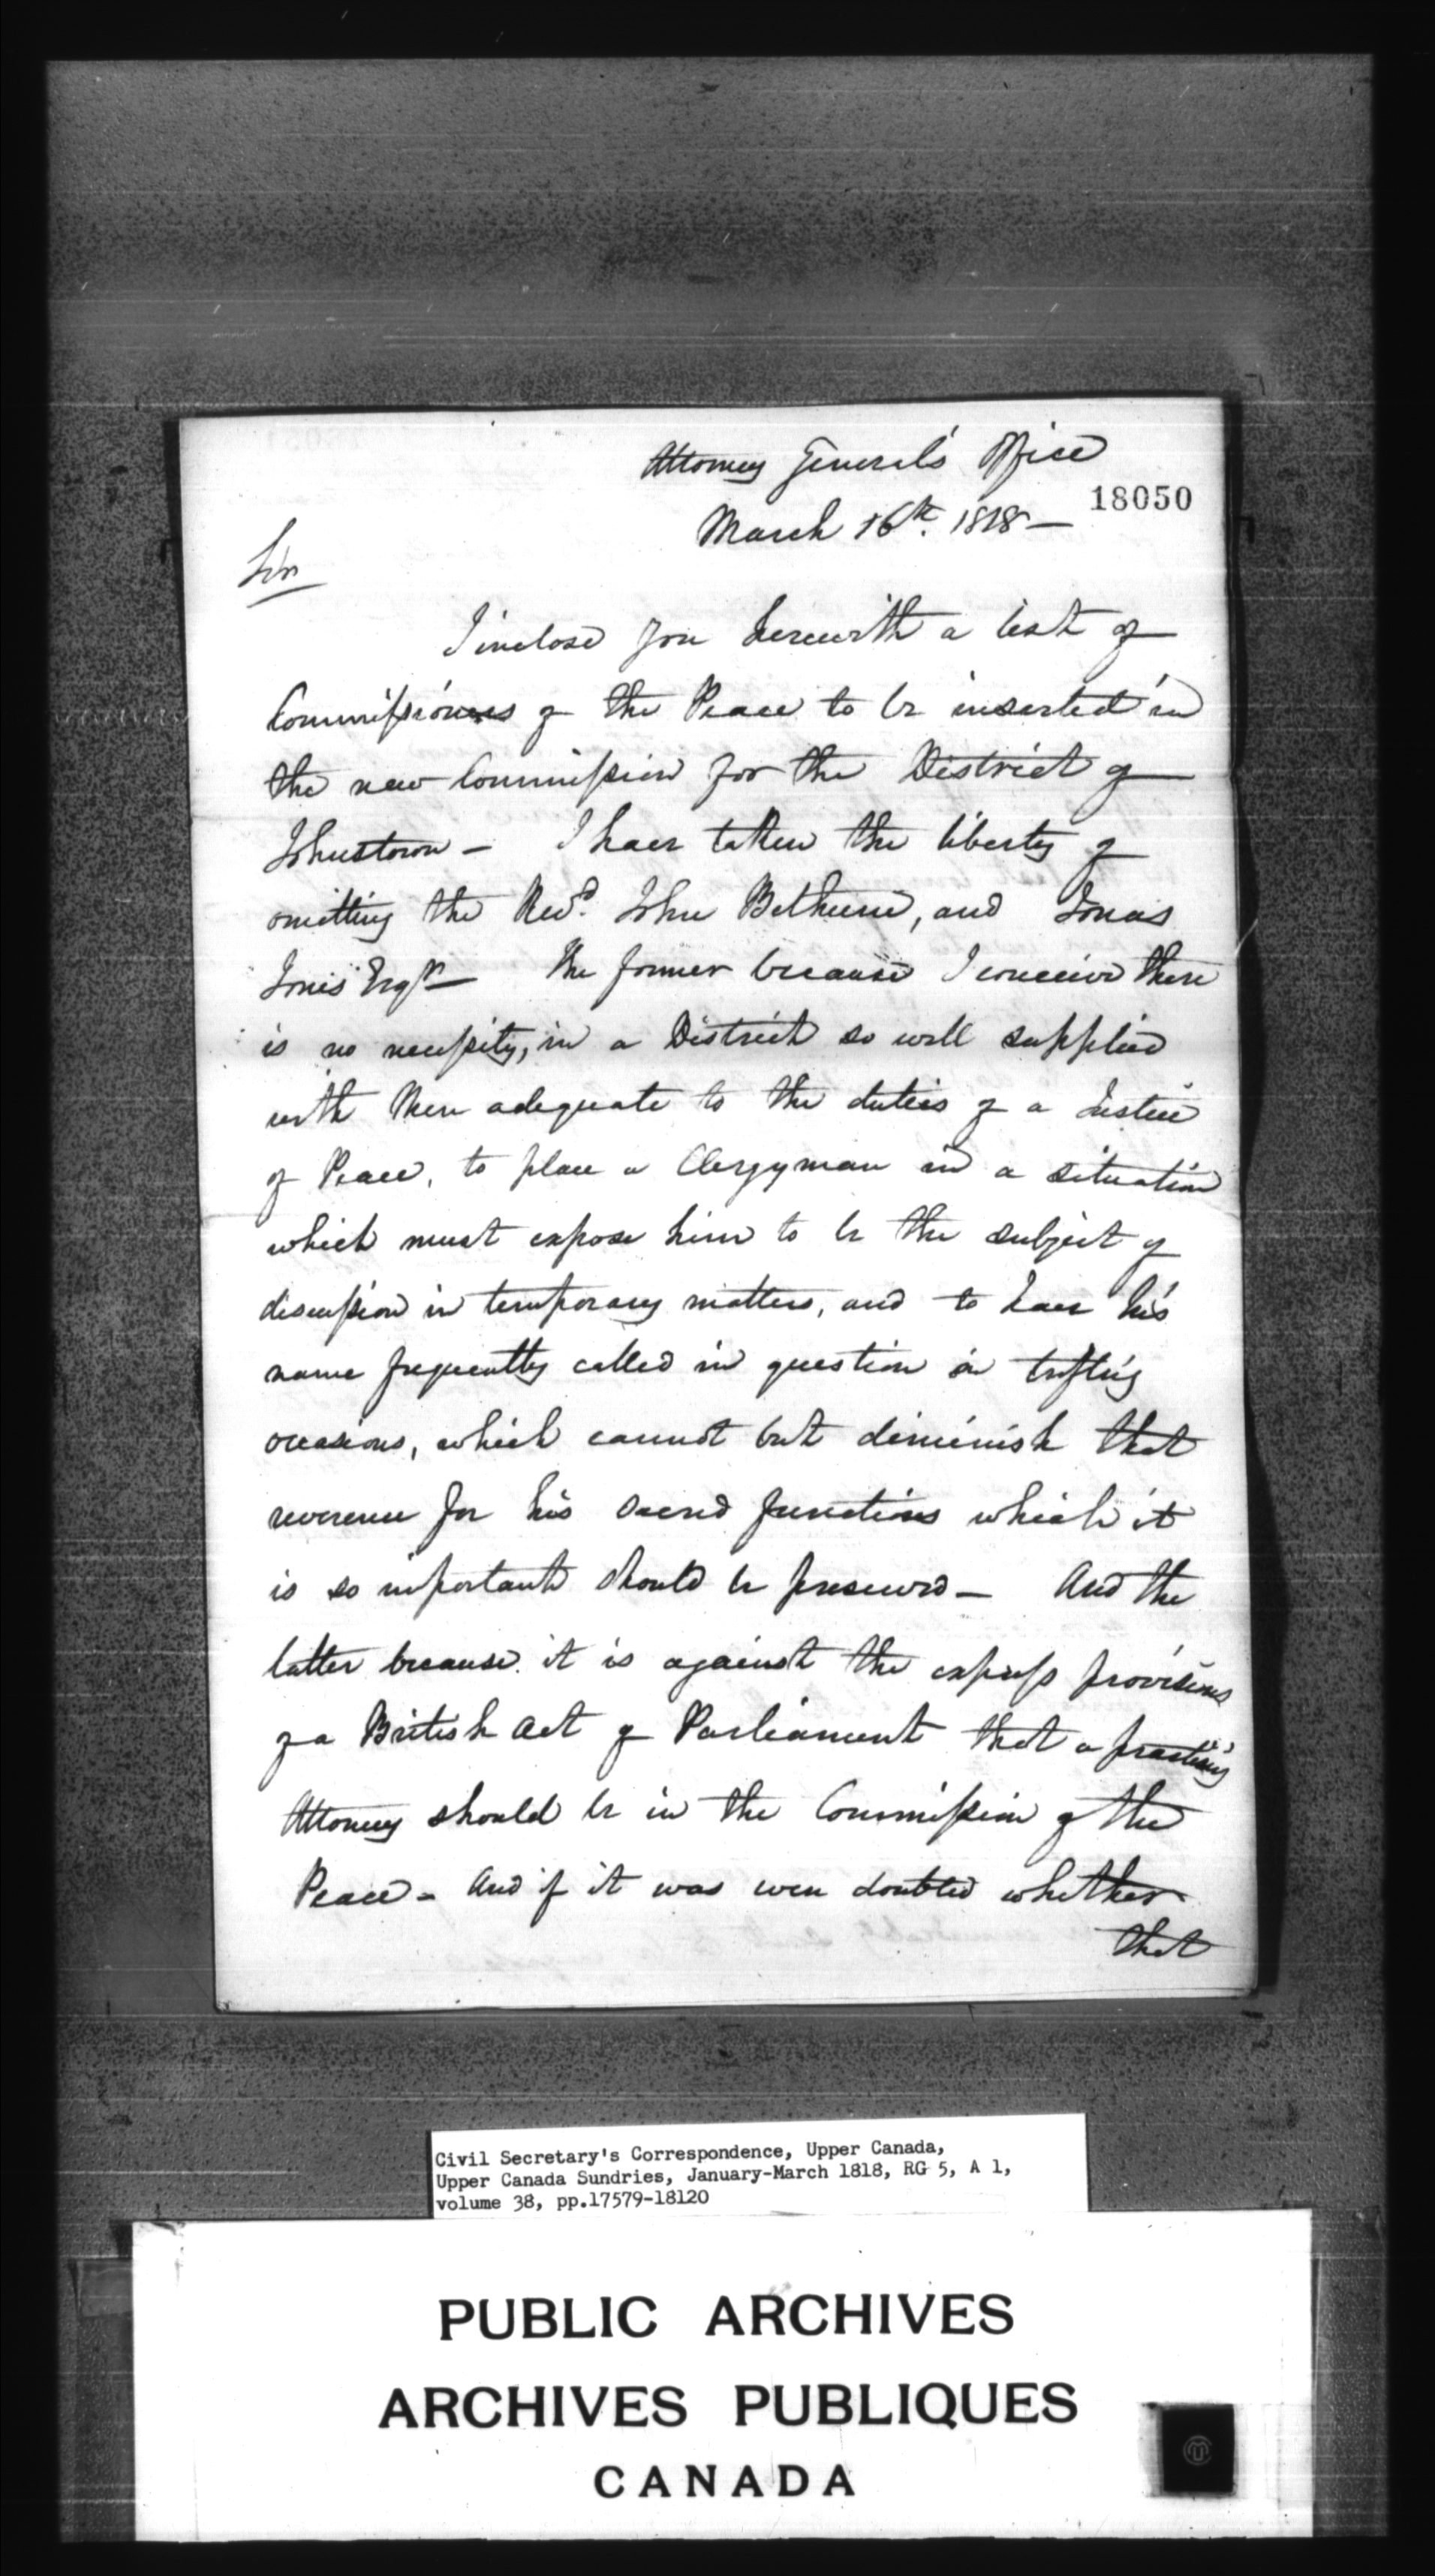 Attorney General's Office
18050
March 16th. 1818 —
Sir
I inclose you herewith a list of
Commissioners of the Peace to be inserted in
the new Commission for the District of
Johnstown — I have taken the liberty of
omitting the Revd. John Bethune, and Jonas
Jones Esqr — The former because I conceive there
is no necessity, in a District so well supplied
with Men adequate to the duties of a Justice
of Peace, to place a Clergyman in a situation
which must expose him to be the subject of
discussion in temporary matters, and to have his
name frequently called in question on trifling
occasions, which cannot but diminish that
reverence for his sacred functions which it
is so important should be preserved — And the
latter because it is against the express provisions
of a British Act of Parliament that a practising
Attorney should be in the Commission of the
Peace — And if it was even doubted whether
that
Civil Secretary's Correspondence, Upper Canada,
Upper Canada Sundries, January-March 1818, RG 5, A 1,
volume 38, pp.17579-18120
PUBLIC ARCHIVES
ARCHIVES PUBLIQUES
CANADA